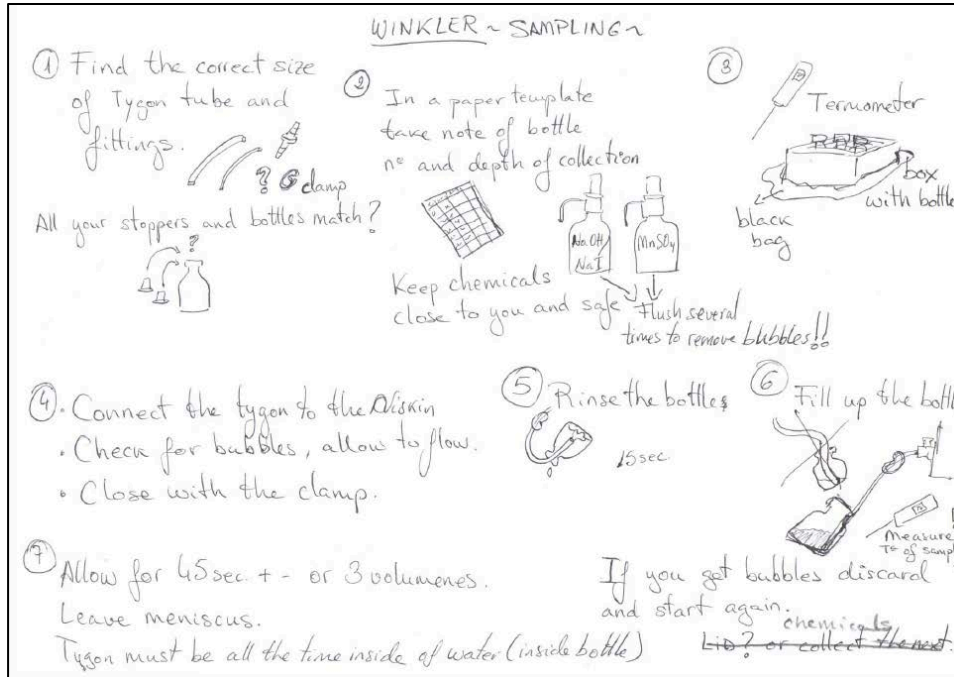 WINKLER ~ SAMPLING ~
① Find the correct size
of Tygon tube and
fittings.
? clamp
All your stoppers and bottles match?
?
② In a paper template
take note of bottle
nº and depth of collection
NaOH/
NaI
MnSO4
Keep chemicals
close to you and safe
Flush several
times to remove bubbles!!
③
Termometer
box
with bottle
black
bag
④ · Connect the tygon to the Niskin
· Check for bubbles, allow to flow.
· Close with the clamp.
⑤ Rinse the bottles
15 sec.
⑥ Fill up the bottl
Measure
Tº of sampl
⑦ Allow for 45 sec. + - or 3 volumenes.
Leave meniscus.
Tygon must be all the time inside of water (inside bottle)
If you get bubbles discard
and start again.
chemicals
LID? or collect the next.